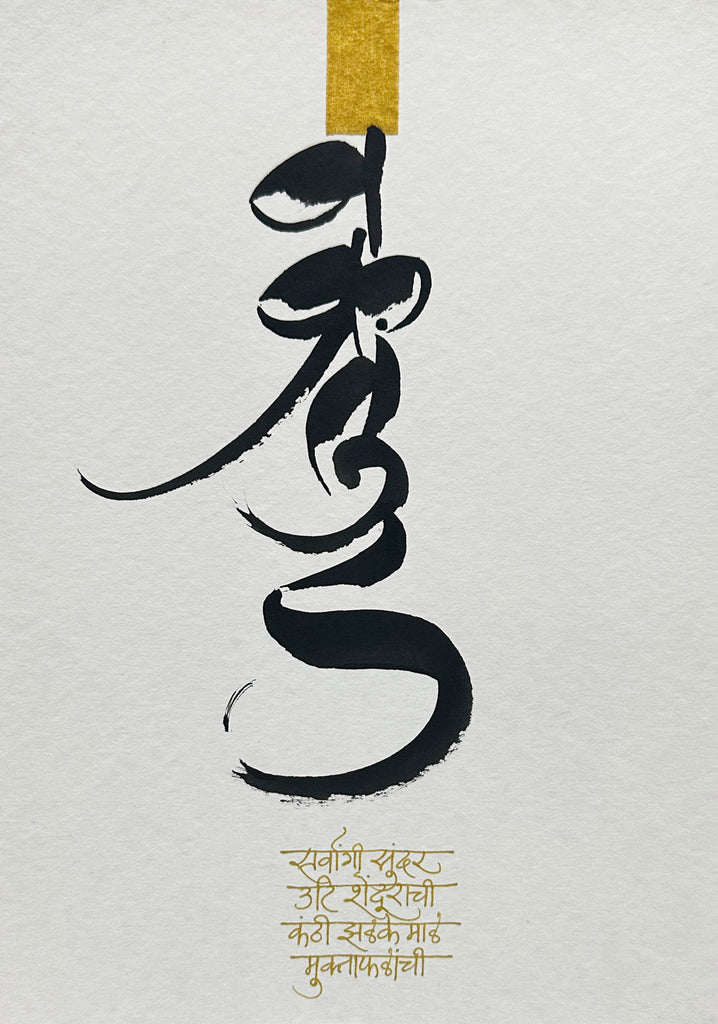 वक्रतुंड
सर्वांगी सुंदर
उटि शेंदूराची
कंठी झळके माळ
मुक्ताफळांची